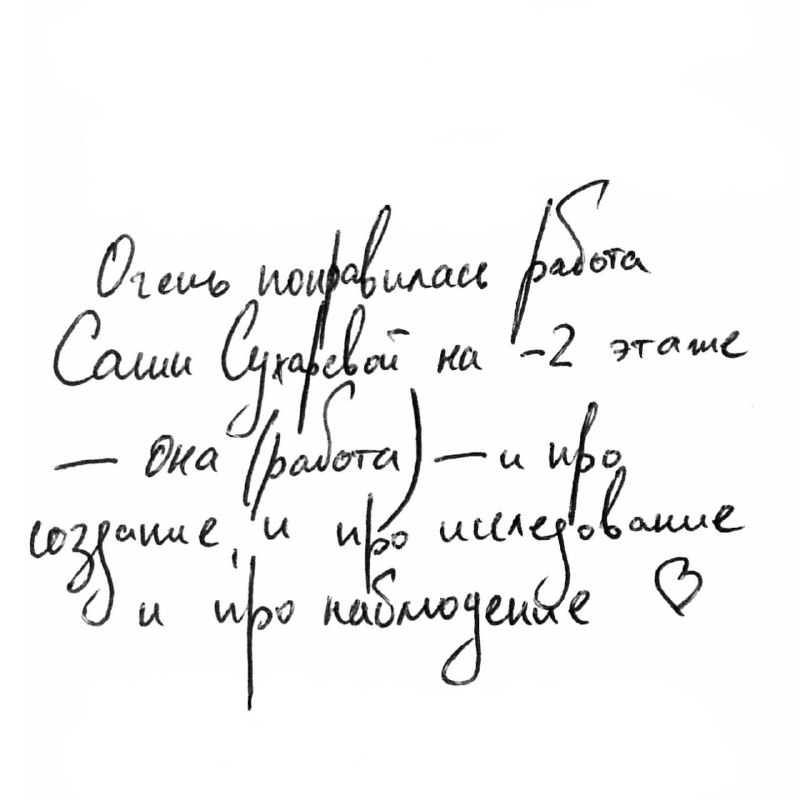 Очень понравилась работа
Саши Сухаревой на -2 этаже
— она (работа) — и про
создание, и про исследование
и про наблюдение ♡